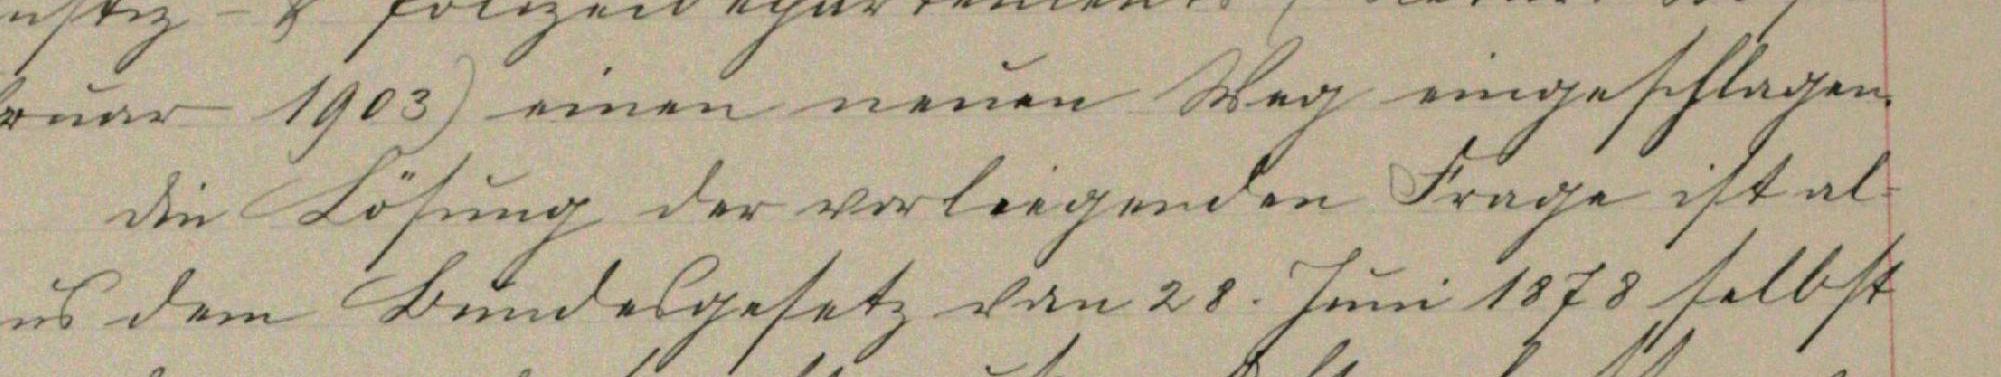 Justiz- & Polizeidepartement
bruar 1903) einen neuen Weg eingeschlagen.
die Lösung der vorliegenden Frage ist al-
us dem Bundesgesetz von 28. Juni 1878 selbst